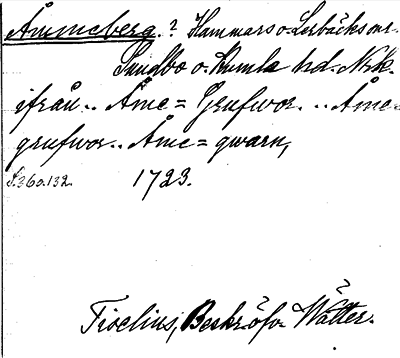 Åmmeberg? Hammars o. Lerbäcks snr.
Sundbo o. Kumla hd. Nrk.
ifrån.. Åme= Grufwor... Åme=
grufwor.. Åme= qwarn,
S.360.132. 1723.
Tiselius, Beskr. öfv. Wätter.